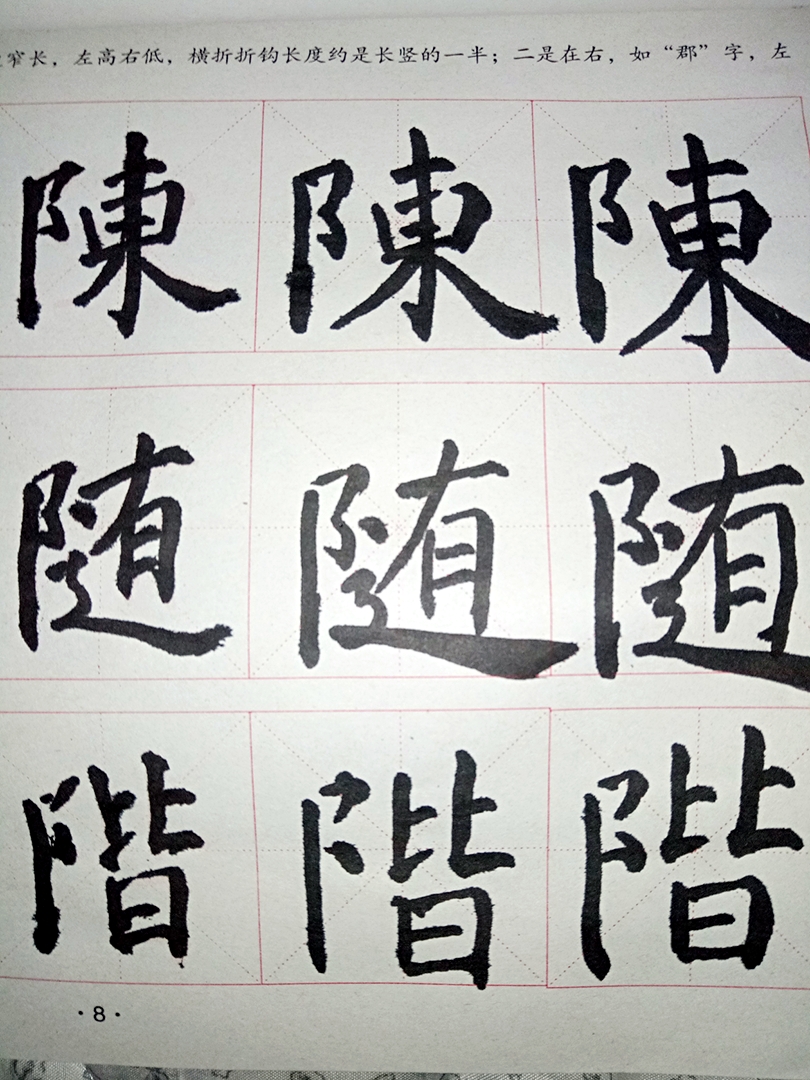 窄长，左高右低，横折折钩长度约是长竖的一半；二是在右，如“郡”字，左
陳 陳 陳
随 随 随
階 階 階
·8·